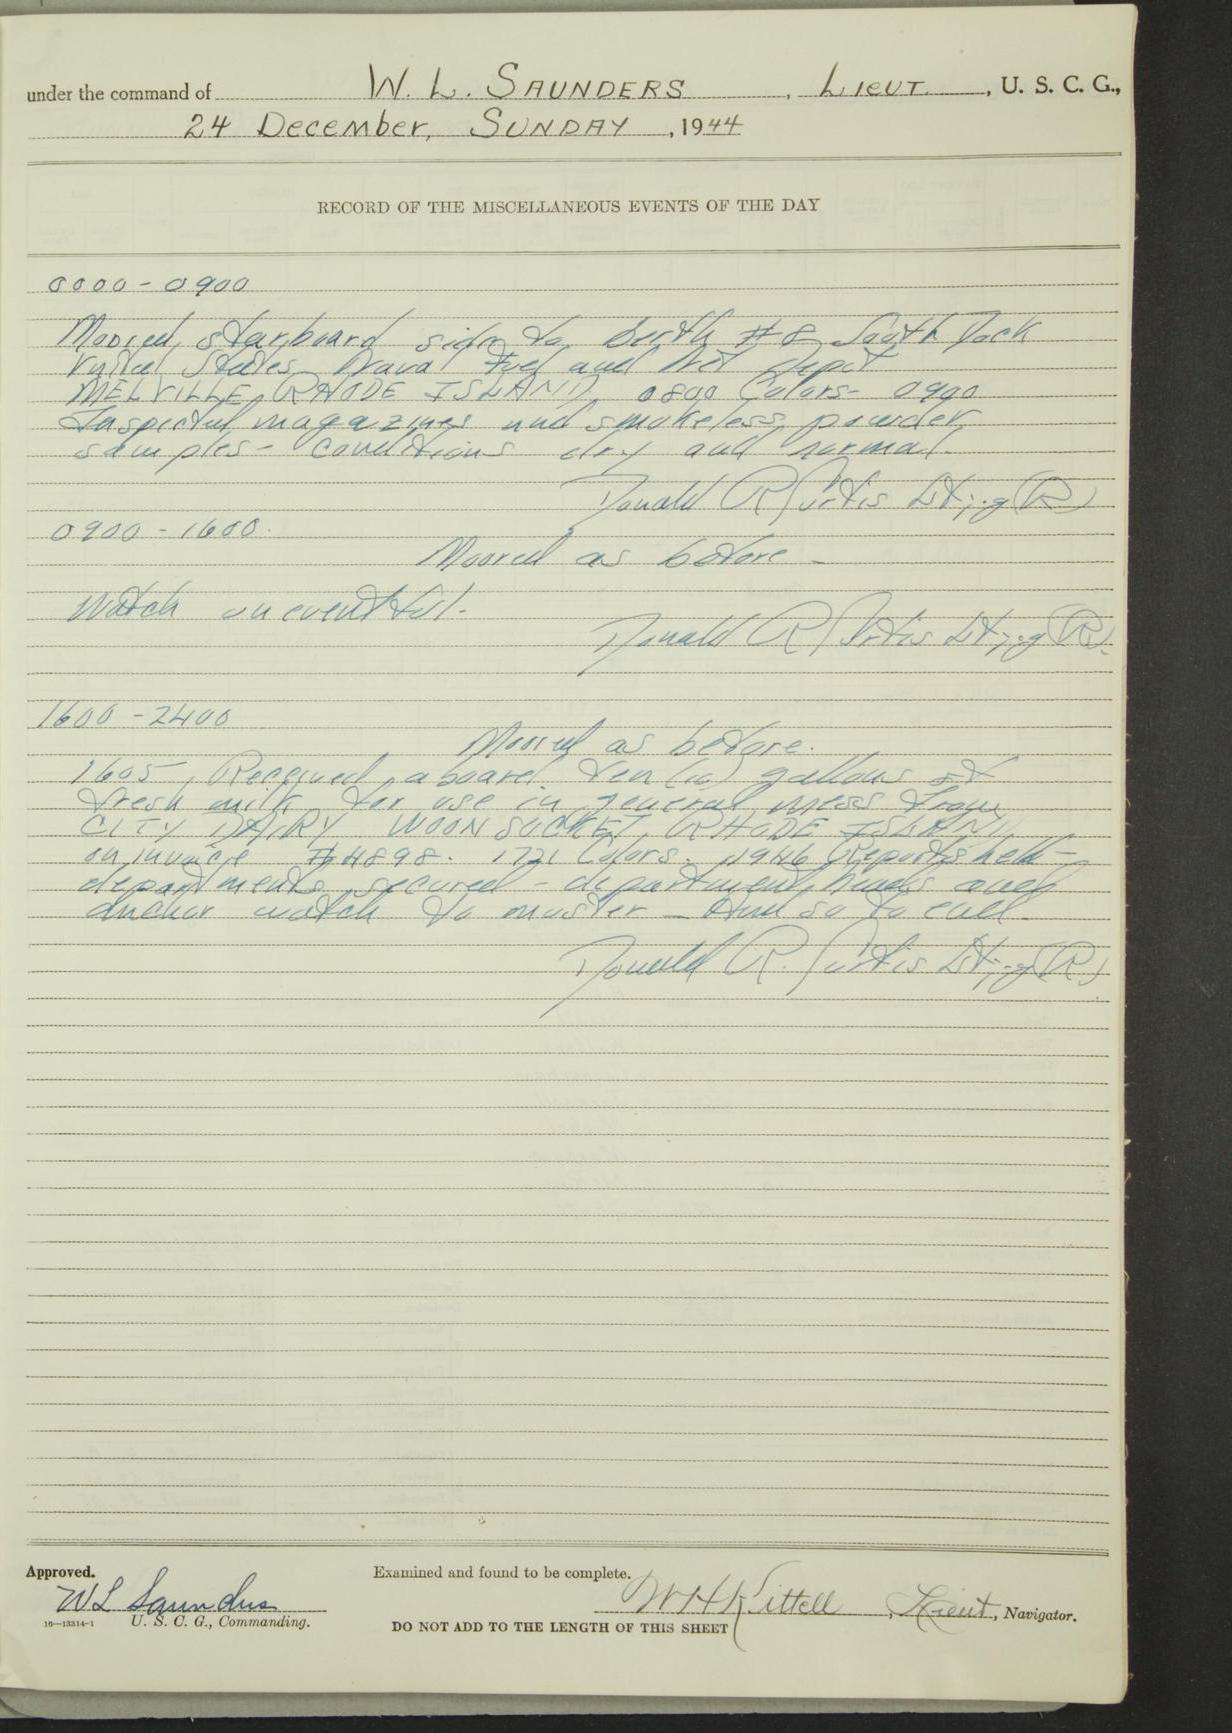 under the command of W. L. SAUNDERS, LIEUT., U. S. C. G.,
24 December, SUNDAY, 1944
RECORD OF THE MISCELLANEOUS EVENTS OF THE DAY
0000 - 0900
Moored starboard side to berth #8 South Dock
United States Naval Fuel and Net depot
MELVILLE, RHODE ISLAND, 0800 Colors - 0900
Inspected magazines and smokeless powder
samples - conditions dry and normal.
Donald R Curtis Lt,j.g(R)
0900 - 1600.
Moored as before -
Watch uneventful.
Donald R Curtis Lt,j.g(R).
1600 - 2400
Moored as before.
1605, Received aboard ten (10) gallons of
fresh milk for use in general mess from
CITY DAIRY WOONSOCKET, RHODE ISLAND,
on invoice #4898. 1721 Colors. 1946 Reports held -
departments secured - department heads and
anchor watch to muster - And so to end.
Donald R. Curtis Lt,j.g(R)
Approved.
W L Saunders
16—13314-1 U. S. C. G., Commanding.
Examined and found to be complete.
W H Kittell, Lieut, Navigator.
DO NOT ADD TO THE LENGTH OF THIS SHEET